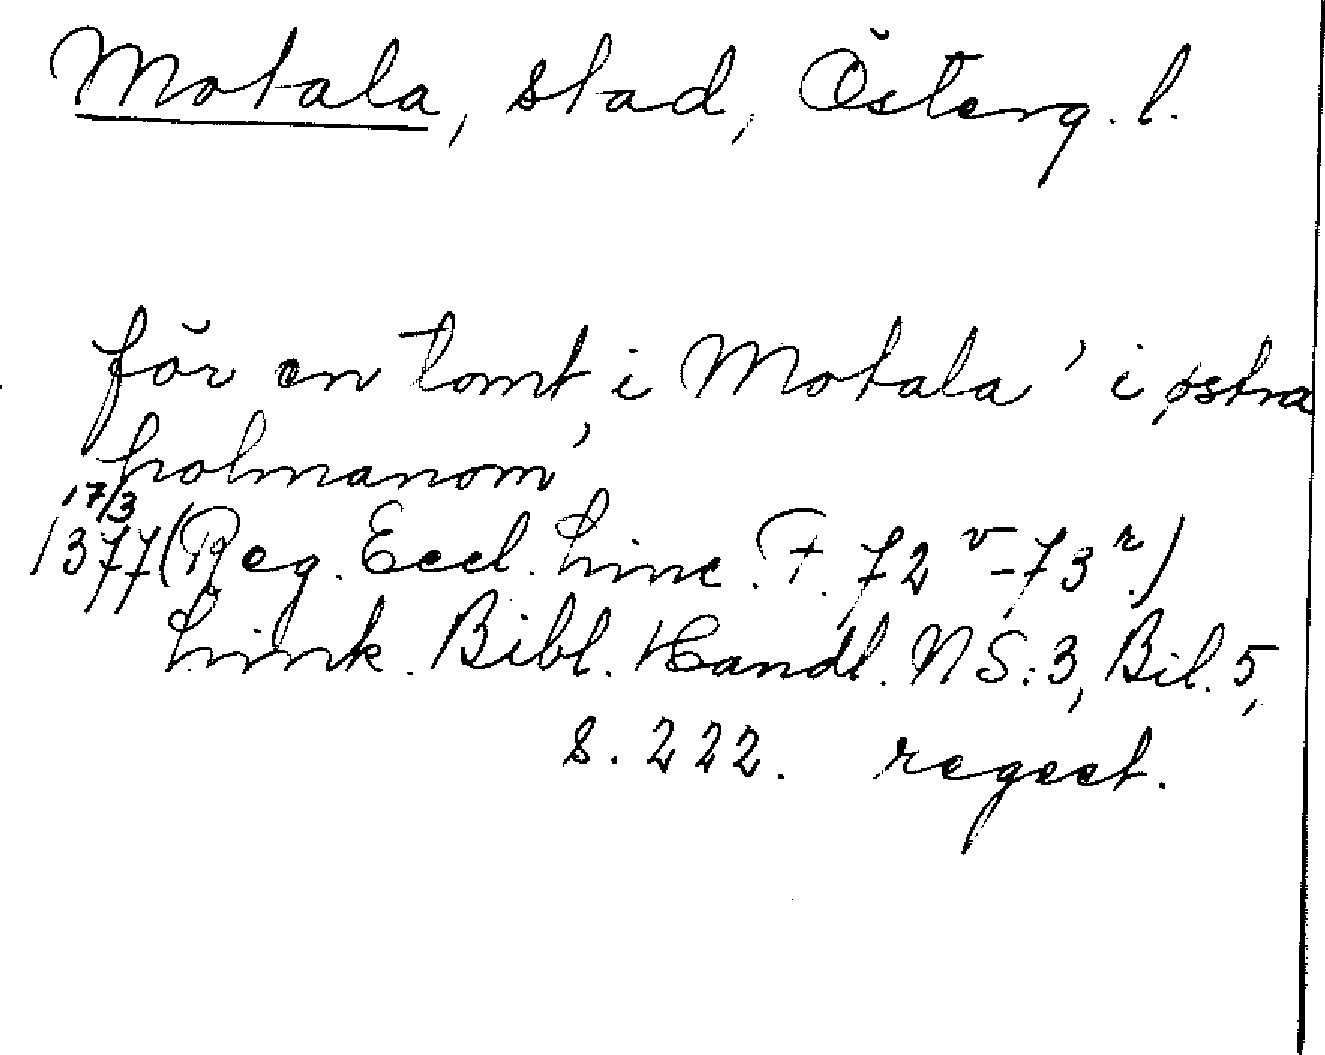 Motala, stad, Österg. l.
för en tomt i Motala 'i østra
holmanom'
17/3
1377 (Reg. Eccl. Linc. F. 72 v - 73 r.)
Link. Bibl. Handl. NS: 3, Bil. 5,
s. 222. regest.